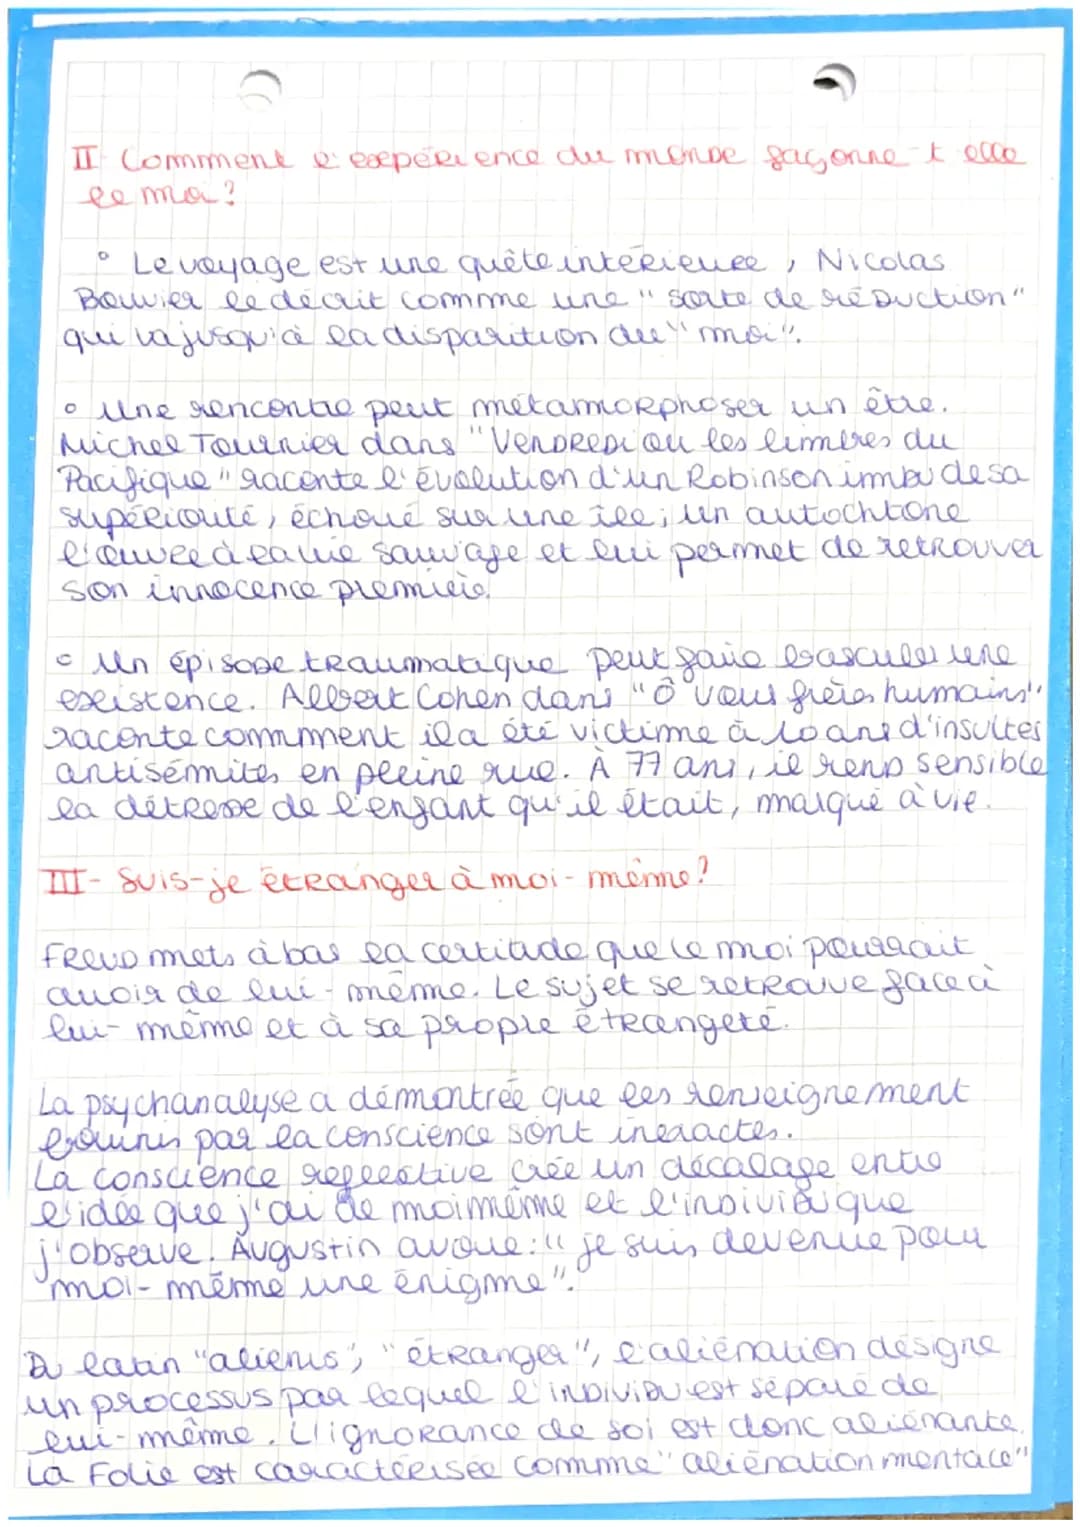 II Comment l'expérience du monde façonne-t-elle
le moi?
° Le voyage est une quête intérieure, Nicolas
Bouvier le décrit comme une "sorte de réduction"
qui va jusqu'à la disparition du "moi".
° Une rencontre peut métamorphoser un être.
Michel Tournier dans "Vendredi ou les limbes du
Pacifique" raconte l'évolution d'un Robinson imbu de sa
supériorité, échoué sur une île; un autochtone
l'ouvre à la vie sauvage et lui permet de retrouver
son innocence première.
° Un épisode traumatique peut faire basculer une
existence. Albert Cohen dans "Ô vous frères humains"
raconte commment il a été victime à 10 ans d'insultes
antisémites en pleine rue. À 77 ans, il rend sensible
la détresse de l'enfant qu'il était, marqué à vie.
III- Suis-je étranger à moi-même?
Freud mets à bas la certitude que le moi pourrait
avoir de lui-même. Le sujet se retrouve face à
lui-même et à sa propre étrangeté.
La psychanalyse a démontrée que les renseignement
fournis par la conscience sont inexactes.
La conscience reflective crée un décalage entre
l'idée que j'ai de moi même et l'individu que
j'observe. Augustin avoue: "je suis devenue pour
moi-même une énigme".
Du latin "alienus", "étranger", l'aliénation désigne
un processus par lequel l'individu est séparé de
lui-même. L'ignorance de soi est donc aliénante.
La Folie est caractérisée comme "aliénation mentale"